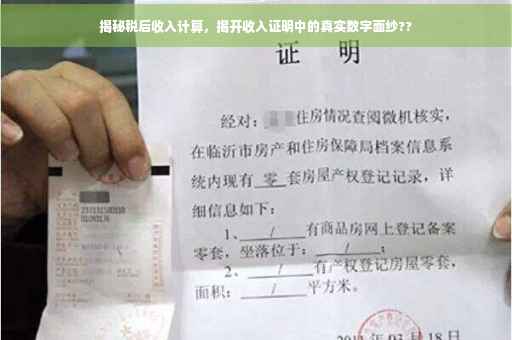 揭秘税后收入计算，揭开收入证明中的真实数字面纱??
证 明
经对：住房情况查阅微机核实，
在临沂市房产和住房保障局档案信息系
统内现有 零 套房屋产权登记记录，详
细信息如下：
1、 / 有商品房网上登记备案
零套，坐落位于： / ；
2、 / 有产权登记房屋零套，
面积： / 平方米。
18日